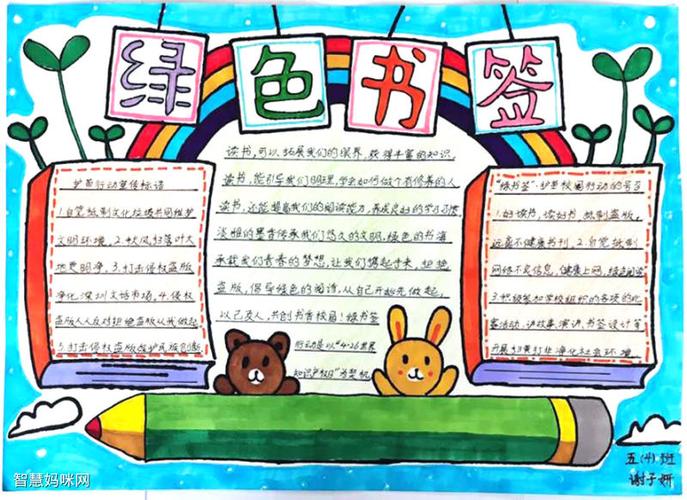 绿色书签
护苗行动宣传标语
1.自觉抵制文化垃圾共同维护
文明环境。2.秋风扫落叶大
地更明净。3.打击侵权盗版
净化深圳文化市场。4.侵权
盗版人人反对拒绝盗版从我做起
5.打击侵权盗版维护民族创新
读书,可以拓展我们的眼界,获得丰富的知识,
读书,能引导我们明理,学会如何做个有修养的人
读书,还能提高我们的阅读能力,养成良好的学习习惯,
淡雅的墨香传承我们悠久的文明,绿色的书海
承载我们青春的梦想,让我们携起手来,拒绝
盗版,倡导绿色的阅读,从自己开始先做起,
以己及人,共创书香校园!绿书签
行动是以“4·26世界
知识产权日”为契机
“绿书签”·护苗校园行动的号召
1.好读书,读好书,抵制盗版,
远离不健康书刊。2.自觉抵制
网络不良信息,健康上网,绿色阅读
3.积极参加学校组织的各项的比
赛活动,讲故事,演讲,书签设计等
开展扫黄打非净化社会环境.
五(4)班
谢子妍
智慧妈咪网